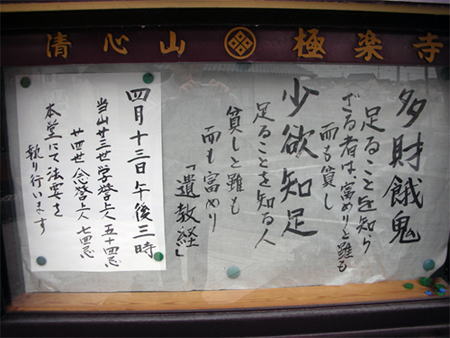 清心山 極楽寺
多財餓鬼
足ることを知ら
ざる者は富めりと雖も
而も貧し
少欲知足
足ることを知る人
貧しと雖も
而も富めり
「遺教経」
四月十三日午後三時
当山廿三世学誉上人五十回忌
廿四世念誉上人七回忌
本堂にて法要を
執り行います